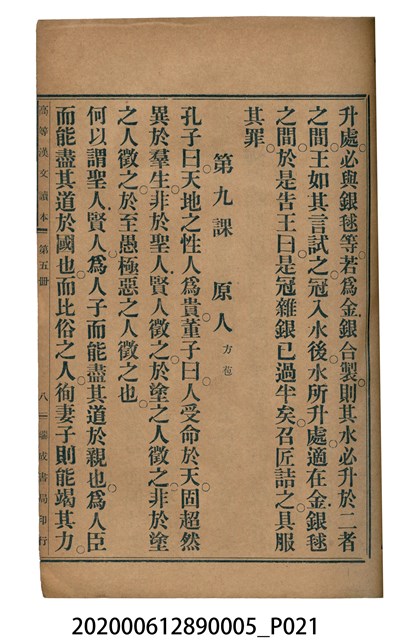 升處必與銀毬等若爲金銀合製則其水必升於二者
之間王如其言試之冠入水後水所升處適在金銀毬
之間於是告王曰是冠雜銀已過半矣召匠詰之具服
其罪
第九課 原人 方苞
孔子曰天地之性人爲貴董子曰人受命於天固超然
異於羣生非於聖人賢人徵之於塗之人徵之非於塗
之人徵之於至愚極惡之人徵之也
何以謂聖人賢人爲人子而能盡其道於親也爲人臣
而能盡其道於國也而比俗之人徇妻子則能竭其力
高等漢文讀本 第五冊 八 瑞成書局印行
202000612890005_P021